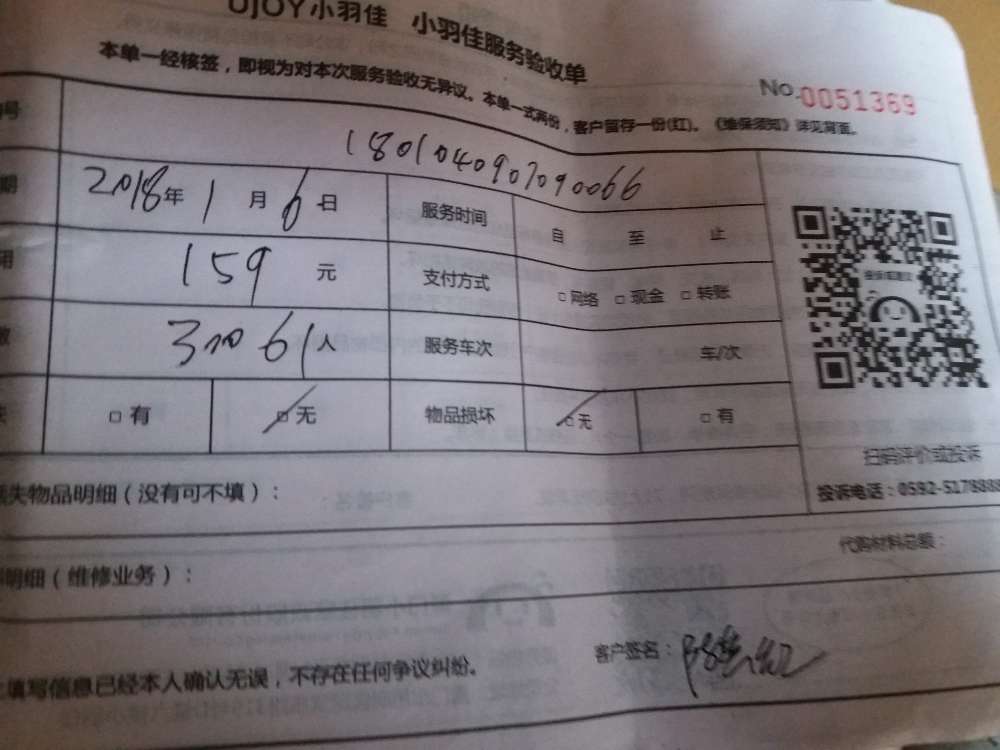 UJOY小羽佳 小羽佳服务验收单
本单一经核签，即视为对本次服务验收无异议。本单一式两份，客户留存一份(红)。《维保须知》详见背面。
No.0051369
号
1801040907090066
期 2018年1月6日 服务时间 自 至 止
用 159元 支付方式 □网络 □现金 □转账
人 服务车次 车/次
□有 □无 物品损坏 □无 □有
扫码评价或投诉
失物品明细（没有可不填）：
投诉电话：0592-5178888
代购材料总额：
明细（维修业务）：
填写信息已经本人确认无误，不存在任何争议纠纷。
客户签名：